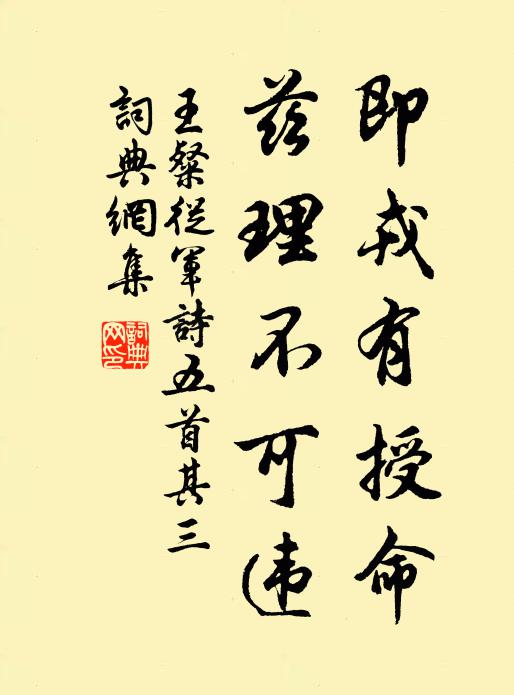 即戎有授命
茲理不可违
王粲從軍詩五首其三
詞典網集
詞典
网印